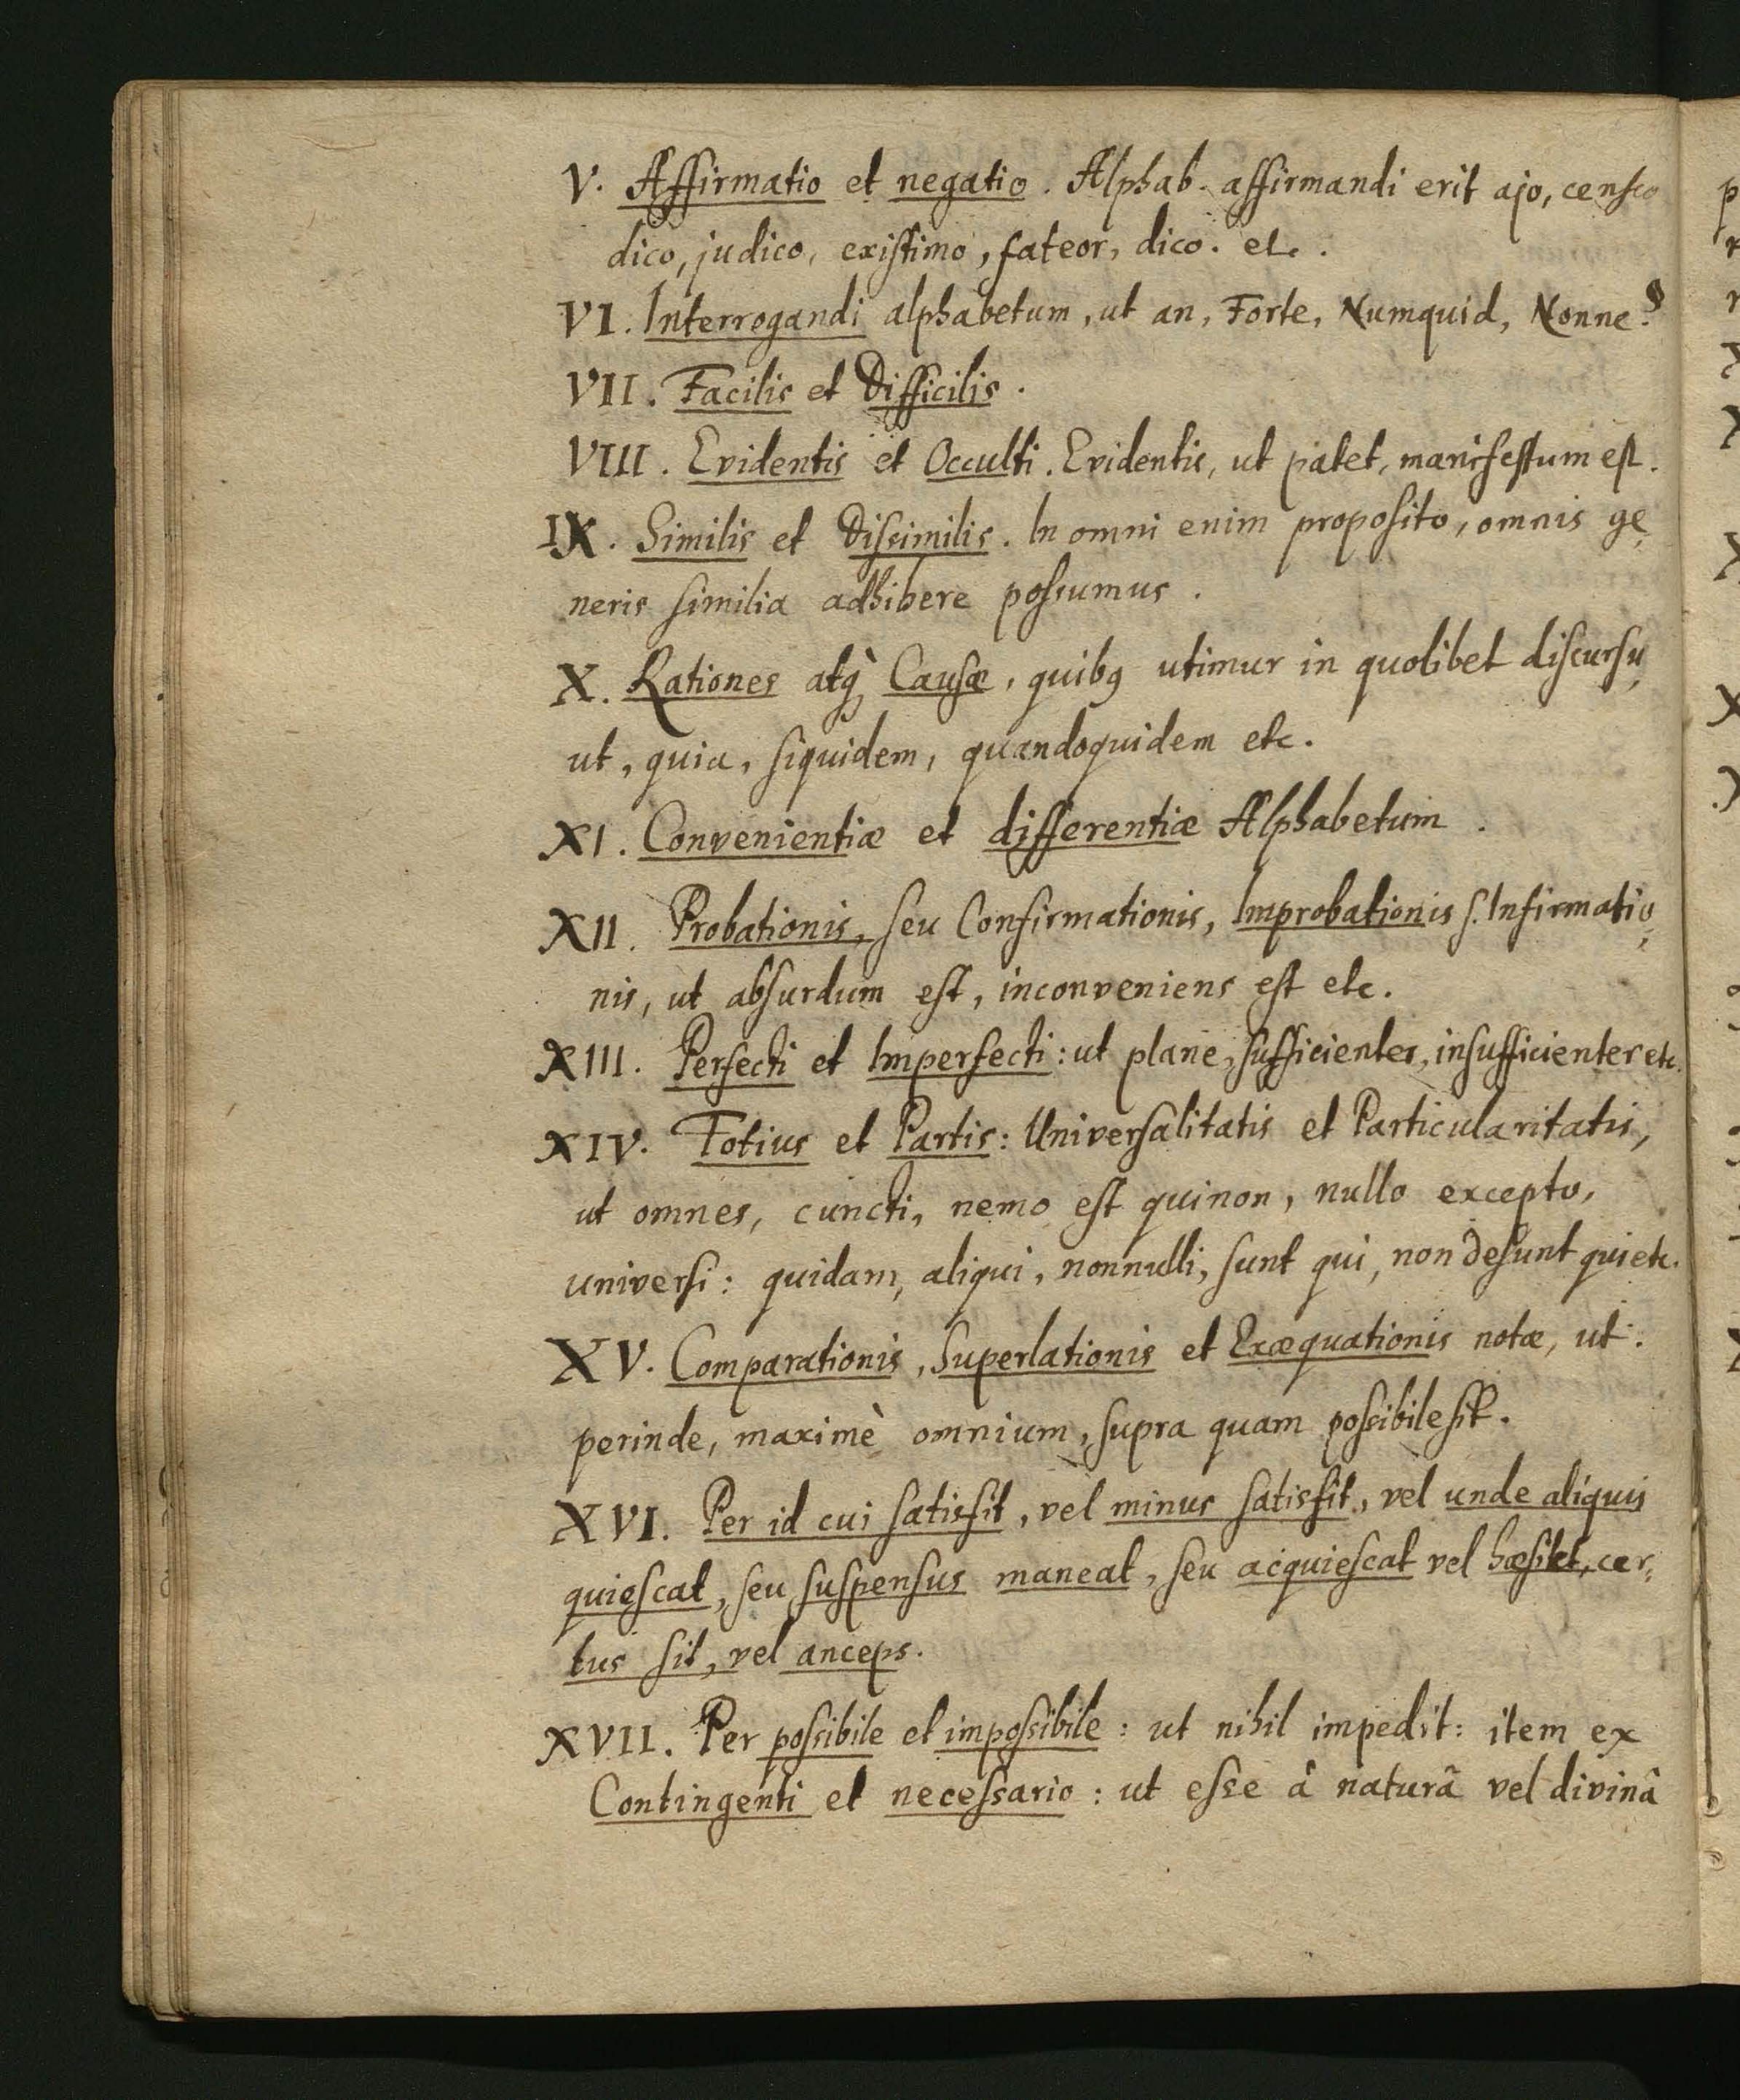 V. Affirmatio et negatio. Alphab. affirmandi erit ajo, censeo
dico, judico, existimo, fateor, dico. etc.
VI. Interrogandi alphabetum, ut an, Forte, Numquid, Nonne?
VII. Facilis et Difficilis.
VIII. Evidentis et Occulti. Evidentis, ut patet, manifestum est.
IX. Similis et Dissimilis. In omni enim proposito, omnis ge„
neris similia adhibere possumus.
X. Rationes atq̀ Causæ, quibꝯ utimur in quolibet discursu„
ut, quia, siquidem, quandoquidem etc.
XI. Convenientiæ et differentiæ Alphabetum.
XII. Probationis, seu Confirmationis, Improbationis s. Infirmatio„
nis, ut absurdum est, inconveniens est etc.
XIII. Perfecti et Imperfecti: ut plane, sufficienter, insufficienter etc.
XIV. Totius et Partis: Universalitatis et Particularitatis,
ut omnes, cuncti, nemo est quinon, nullo excepto,
universi: quidam, aliqui, nonnulli, sunt qui, non desunt qui etc.
XV. Comparationis, Superlationis et Exæquationis notæ, ut.
perinde, maximè omnium, supra quam possibile sit.
XVI. Per id cui satisfit, vel minus satisfit, vel unde aliquis
quiescat, seu suspensus maneat, seu acquiescat vel hæsitet, cer„
tus sit, vel anceps.
XVII. Per possibile et impossibile: ut nihil impedit: item ex
Contingenti et necessario: ut esse â naturâ vel divinâ